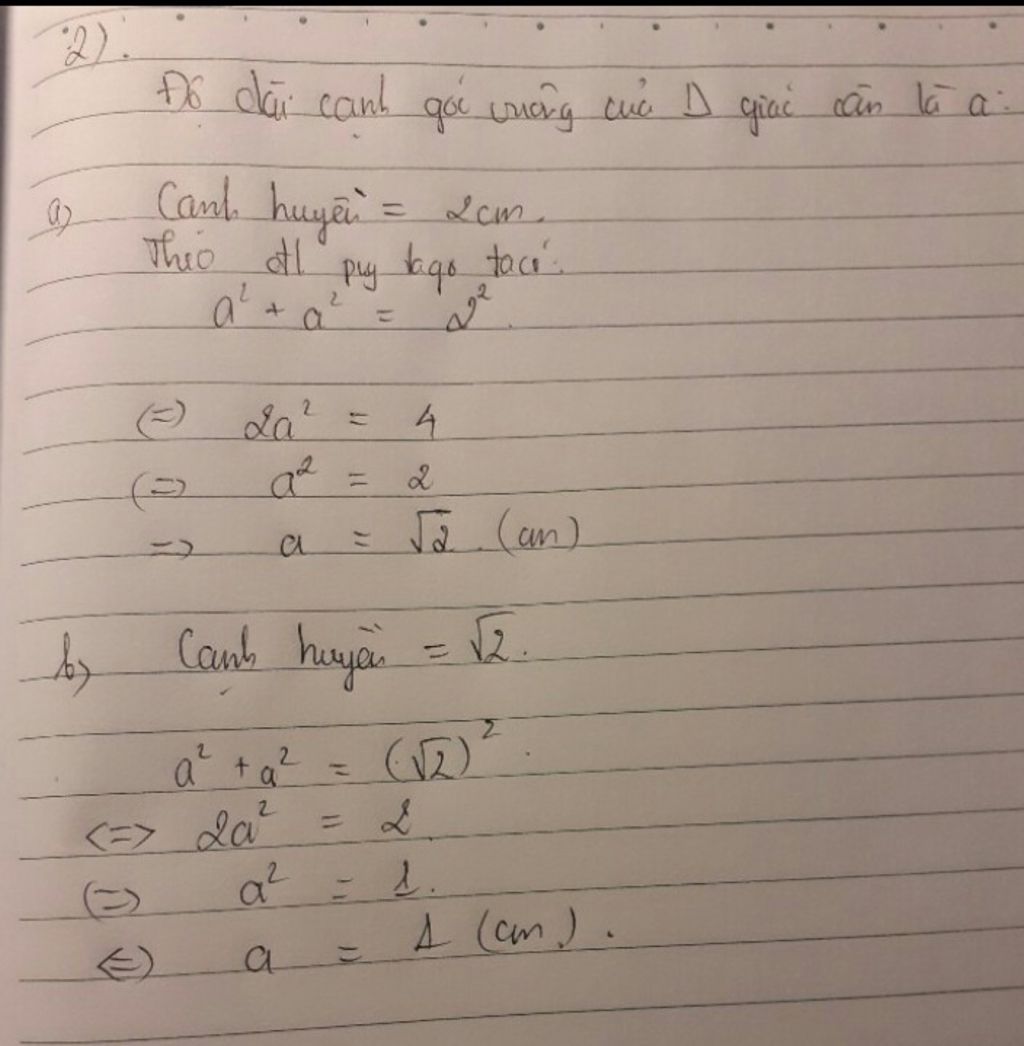 2).
Độ dài cạnh góc vuông của Δ giác cân là a.
a) Cạnh huyền = 2cm.
Theo đl pytago ta có:
a² + a² = 2².
(=) 2a² = 4
(=) a² = 2
=> a = √2 (cm)
b) Cạnh huyền = √2.
a² + a² = (√2)².
<=> 2a² = 2
(=) a² = 1.
(=) a = 1 (cm).